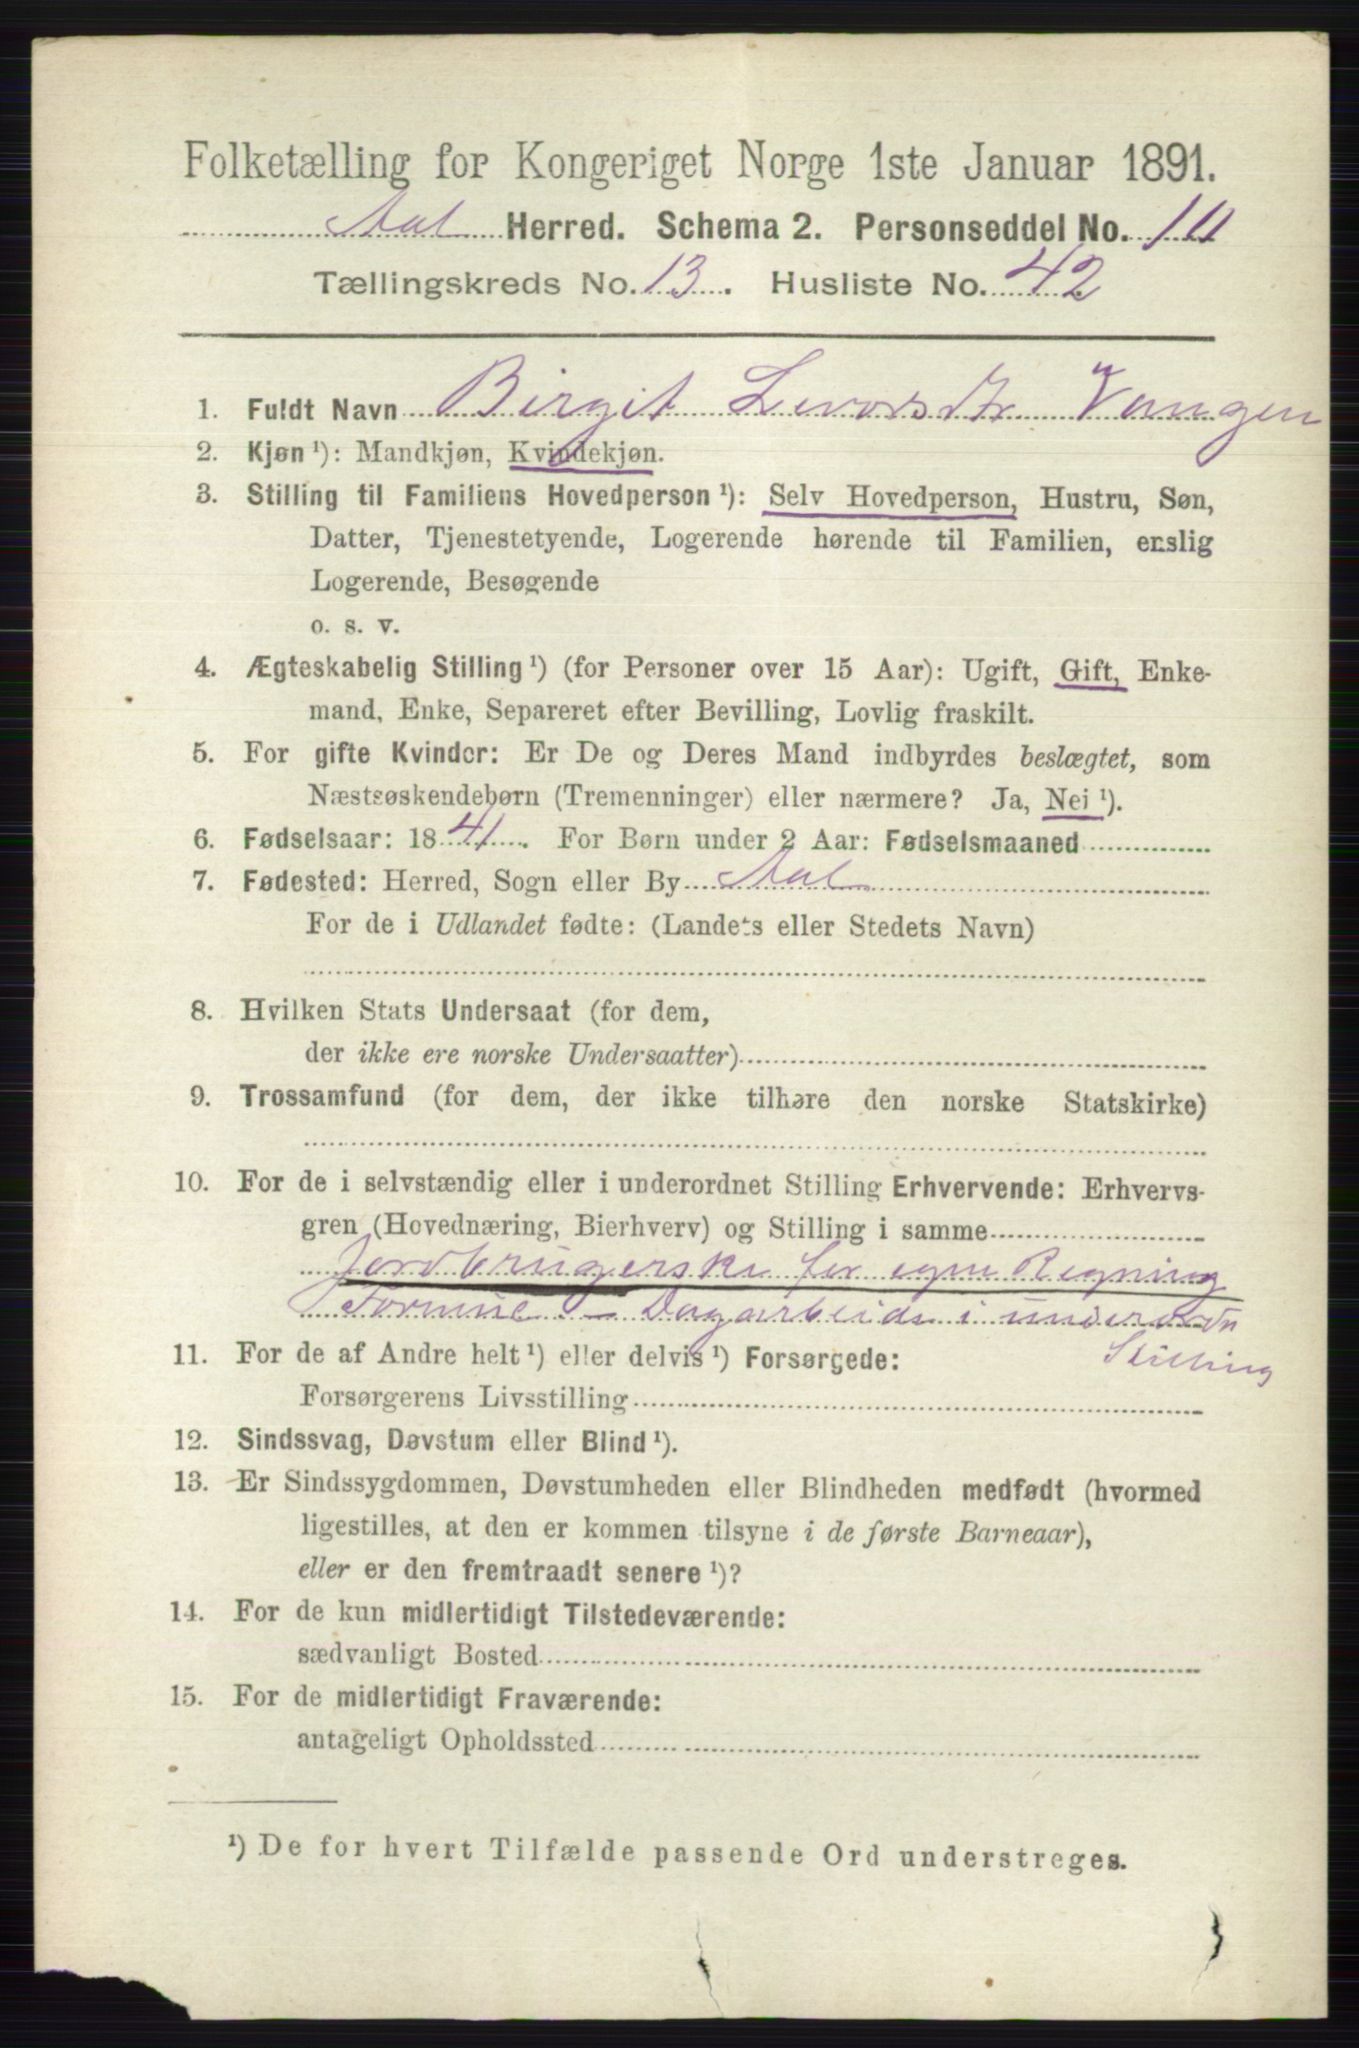 Folketælling for Kongeriget Norge 1ste Januar 1891.
Aal Herred. Schema 2. Personseddel No. 10
Tællingskreds No. 13. Husliste No. 42
1. Fuldt Navn Birgit Levorsdtr Vangen
2. Kjøn ¹): Mandkjøn, Kvindekjøn.
3. Stilling til Familiens Hovedperson ¹): Selv Hovedperson, Hustru, Søn,
Datter, Tjenestetyende, Logerende hørende til Familien, enslig
Logerende, Besøgende
o. s. v.
4. Ægteskabelig Stilling ¹) (for Personer over 15 Aar): Ugift, Gift, Enke-
mand, Enke, Separeret efter Bevilling, Lovlig fraskilt.
5. For gifte Kvinder: Er De og Deres Mand indbyrdes beslægtet, som
Næstsøskendebørn (Tremenninger) eller nærmere? Ja, Nei ¹).
6. Fødselsaar: 1841. For Børn under 2 Aar: Fødselsmaaned
7. Fødested: Herred, Sogn eller By Aal
For de i Udlandet fødte: (Landets eller Stedets Navn)
8. Hvilken Stats Undersaat (for dem,
der ikke ere norske Undersaatter)
9. Trossamfund (for dem, der ikke tilhøre den norske Statskirke)
10. For de i selvstændig eller i underordnet Stilling Erhvervende: Erhvervs-
gren (Hovednæring, Bierhverv) og Stilling i samme
Jordbrugerske for egen Regning
– Dagarbeide i underordn
11. For de af Andre helt ¹) eller delvis ¹) Forsørgede: Stilling
Forsørgerens Livsstilling
12. Sindssvag, Døvstum eller Blind ¹).
13. Er Sindssygdommen, Døvstumheden eller Blindheden medfødt (hvormed
ligestilles, at den er kommen tilsyne i de første Barneaar),
eller er den fremtraadt senere ¹)?
14. For de kun midlertidigt Tilstedeværende:
sædvanligt Bosted
15. For de midlertidigt Fraværende:
antageligt Opholdssted
¹) De for hvert Tilfælde passende Ord understreges.